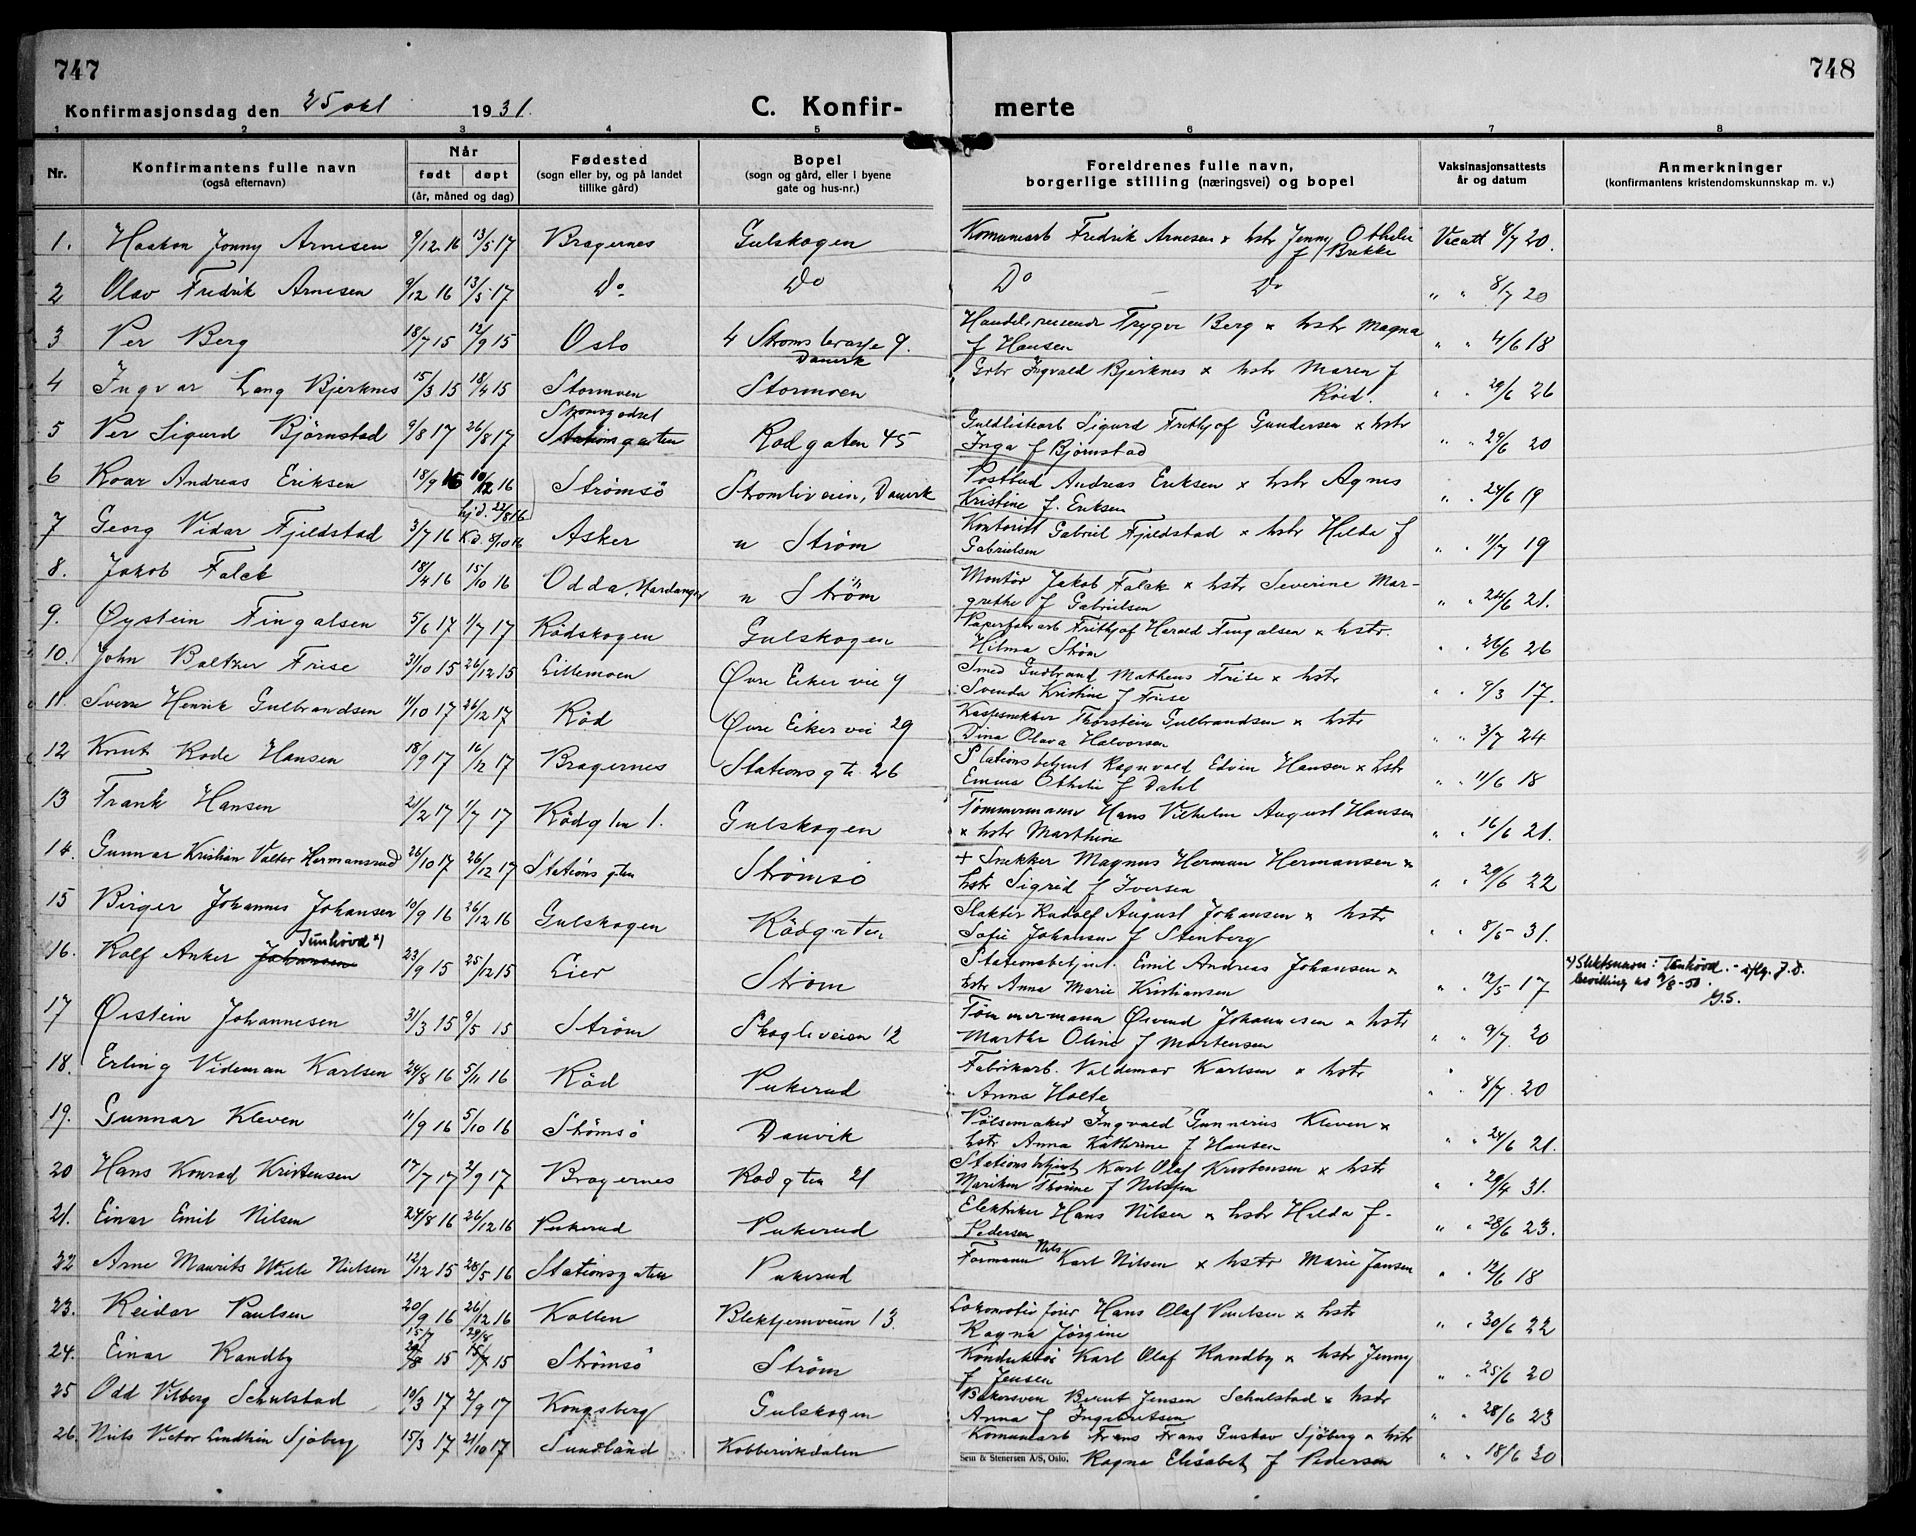 747
748
Konfirmasjonsdag den 25 okt 1931.
C. Konfir- merte
1 2 3 4 5 6 7 8
Nr.
Konfirmantens fulle navn
(også efternavn)
Når
født døpt
(år, måned og dag)
Fødested
(sogn eller by, og på landet
tillike gård)
Bopel
(sogn og gård, eller i byene
gate og hus-nr.)
Foreldrenes fulle navn,
borgerlige stilling (næringsvei) og bopel
Vaksinasjonsattests
år og datum
Anmerkninger
(konfirmantens kristendomskunnskap m. v.)
1. Haakon Jonny Arnesen 9/12 16 13/5 17 Bragernes Gulskogen Komunearb Fredrik Arnesen x hstr Jenny Othelie
f Brekke Vacatt 8/7 20.
2 Olav Fredrik Arnesen 9/12 16 13/5 17 Do Do Do Do " " 8/7 20
3 Per Berg 18/7 15 12/9 15 Oslo 4 Stroms terasse 9.
Danvik Handelsreisende Trygve Berg x hstr Magna
f Hansen " " 4/6 18
4 Ingvar Lang Bjerknes 15/3 15 18/4 15 Stormoen Stormoen Grbr Ingvald Bjerknes x hstr Maren f
Roed. " " 29/6 26
5 Per Sigurd Björnstad 9/8 17 26/8 17 Stromsgodset
Stationsgaten Rodgaten 45 Guldlistearb Sigurd Frithjof Gundersen x hstr
Inga f Bjørnstad " " 29/6 20
6 Roar Andreas Eriksen 18/9 16 10/12 16 Strømsö Stromliveien, Danvik Postbud Andreas Eriksen x hstr Agnes
Kristine f. Eriksen " " 24/6 19
7 Georg Vidar Fjeldstad 3/7 16 hj.d. 22/8 16
Kd. 8/10 16 Asker n Strøm Kontorist Gabriel Fjeldstad x hstr Hilda f
Gabrielsen " " 11/7 19
8. Jakob Falck 18/4 16 15/10 16 Odda, Hardanger n Ström Montör Jakob Falck x hstr Severine Mar-
grethe f Gabrielsen " " 24/6 21.
9. Øystein Fingalsen 5/6 17 1/7 17 Rödskogen Gulskogen Papirfabr arb Frithjof Harald Fingalsen x hstr.
Hilma Strøm " " 26/6 26
10. John Baltzer Frise 31/10 15 26/12 15 Lillemoen Øvre Eiker vei 9 Smed Gudbrand Matheus Frise x hstr
Svenda Kristine f Frise " " 9/3 17.
11. Sverre Henrik Gulbrandsen 11/10 17 26/12 17 Röd Øvre Eiker vei 29 Thorstein Gulbrandsen x hstr
Dina Olava Halvorsen " " 3/7 24
12 Knut Rode Hansen 18/9 17 16/12 17 Bragernes Stationsgt. 26 Stationsbetjent Ragnvald Edvin Hansen x hstr
Emma Othelie f Dahl " " 11/6 18
13 Frank Hansen 21/2 17 1/7 17 Rödgten 1. Gulskogen Tömmermann Hans Vilhelm August Hansen
x hstr Marthine " " 16/6 21.
14. Gunnar Kristian Valter Hermansrud 26/10 17 26/12 17 Stationsgten Strømsö + Snekker Magnus Herman Hermansen x
hstr Sigrid f Iversen " " 29/6 22
15 Birger Johannes Johansen 10/9 16 26/12 16 Gulskogen Rödgaten Slakter Rudolf August Johansen x hstr
Sofie Johansen f Stenberg " " 8/5 - 31.
Tunhövd *)
16. Rolf Anker Johansen 23/9 15 25/12 15 Lier Strøm Stationsbetjent. Emil Andreas Johansen x
hstr Anna Marie Kristiansen " " 12/5 17 *) Slektsnavn: Tunhövd. - iflg. J.D.
bevilling av 9/8-50.
G.S.
17 Øistein Johannesen 31/3 15 9/5 15 Ström Skogliveien 12 Tömmermann Øivind Johannesen x hstr
Marthe Oline f Mortensen " " 9/7. 20
18. Erling Videman Karlsen 24/8 16 5/11 16 Röd Pukerud Fabrikarb. Valdemar Karlsen x hstr
Anna Holte " " 8/7. 20
19. Gunnar Kleven 11/9 16 5/10 16 Stömsö Danvik Pölsemaker Ingvald Gunnerius Kleven x
hstr Anna Kathrine f Hansen " " 24/6 21.
20 Hans Konrad Kristensen 17/7 17 2/9 17 Bragernes Rodgten 21 Stationsbetjent Karl Olaf Kristensen x hstr
Mariken Thorine f Nilssen " " 29/4 31.
21. Einar Emil Nilsen 24/8 16 26/12 16 Pukerud Pukerud Elektriker Hans Nilsen x hstr Hilda f-
Pedersen " " 28/6 23.
22 Arne Maurits Wille Nielsen 12/12 15 28/5 16 Stationsgaten Pukerud Formann Nils Karl Nilsen x hstr Marie Jansen " " 12/6 18
23. Reidar Paulsen 20/9 16 26/12 16 Kollen Blektjernveien 13. Lokomotivfører Hans Olaf Paulsen x hstr
Ragna Jörgine " " 30/6 22
24. Einar Randby 15/7 15 29/8 15 Strömsö Ström Konduktör Karl Olaf Randby x hstr Jenny
f Jensen " " 25/6 20
25 Odd Vilberg Schulstad 10/3 17 2/9 17 Kongsberg Gulskogen Bakersven Bernt Jensen Schulstad x hstr
Anna f Ingebretsen " " 28/6 23
26. Nils Victor Lendhin Sjöberg 15/3 17 21/10 17 Sundland Kobbervikdalen Komunearb Frans Frans Gustav Sjöberg x hstr
Ragna Elisabet f Pedersen " " 18/6 30
Sem & Stenersen A/S, Oslo.